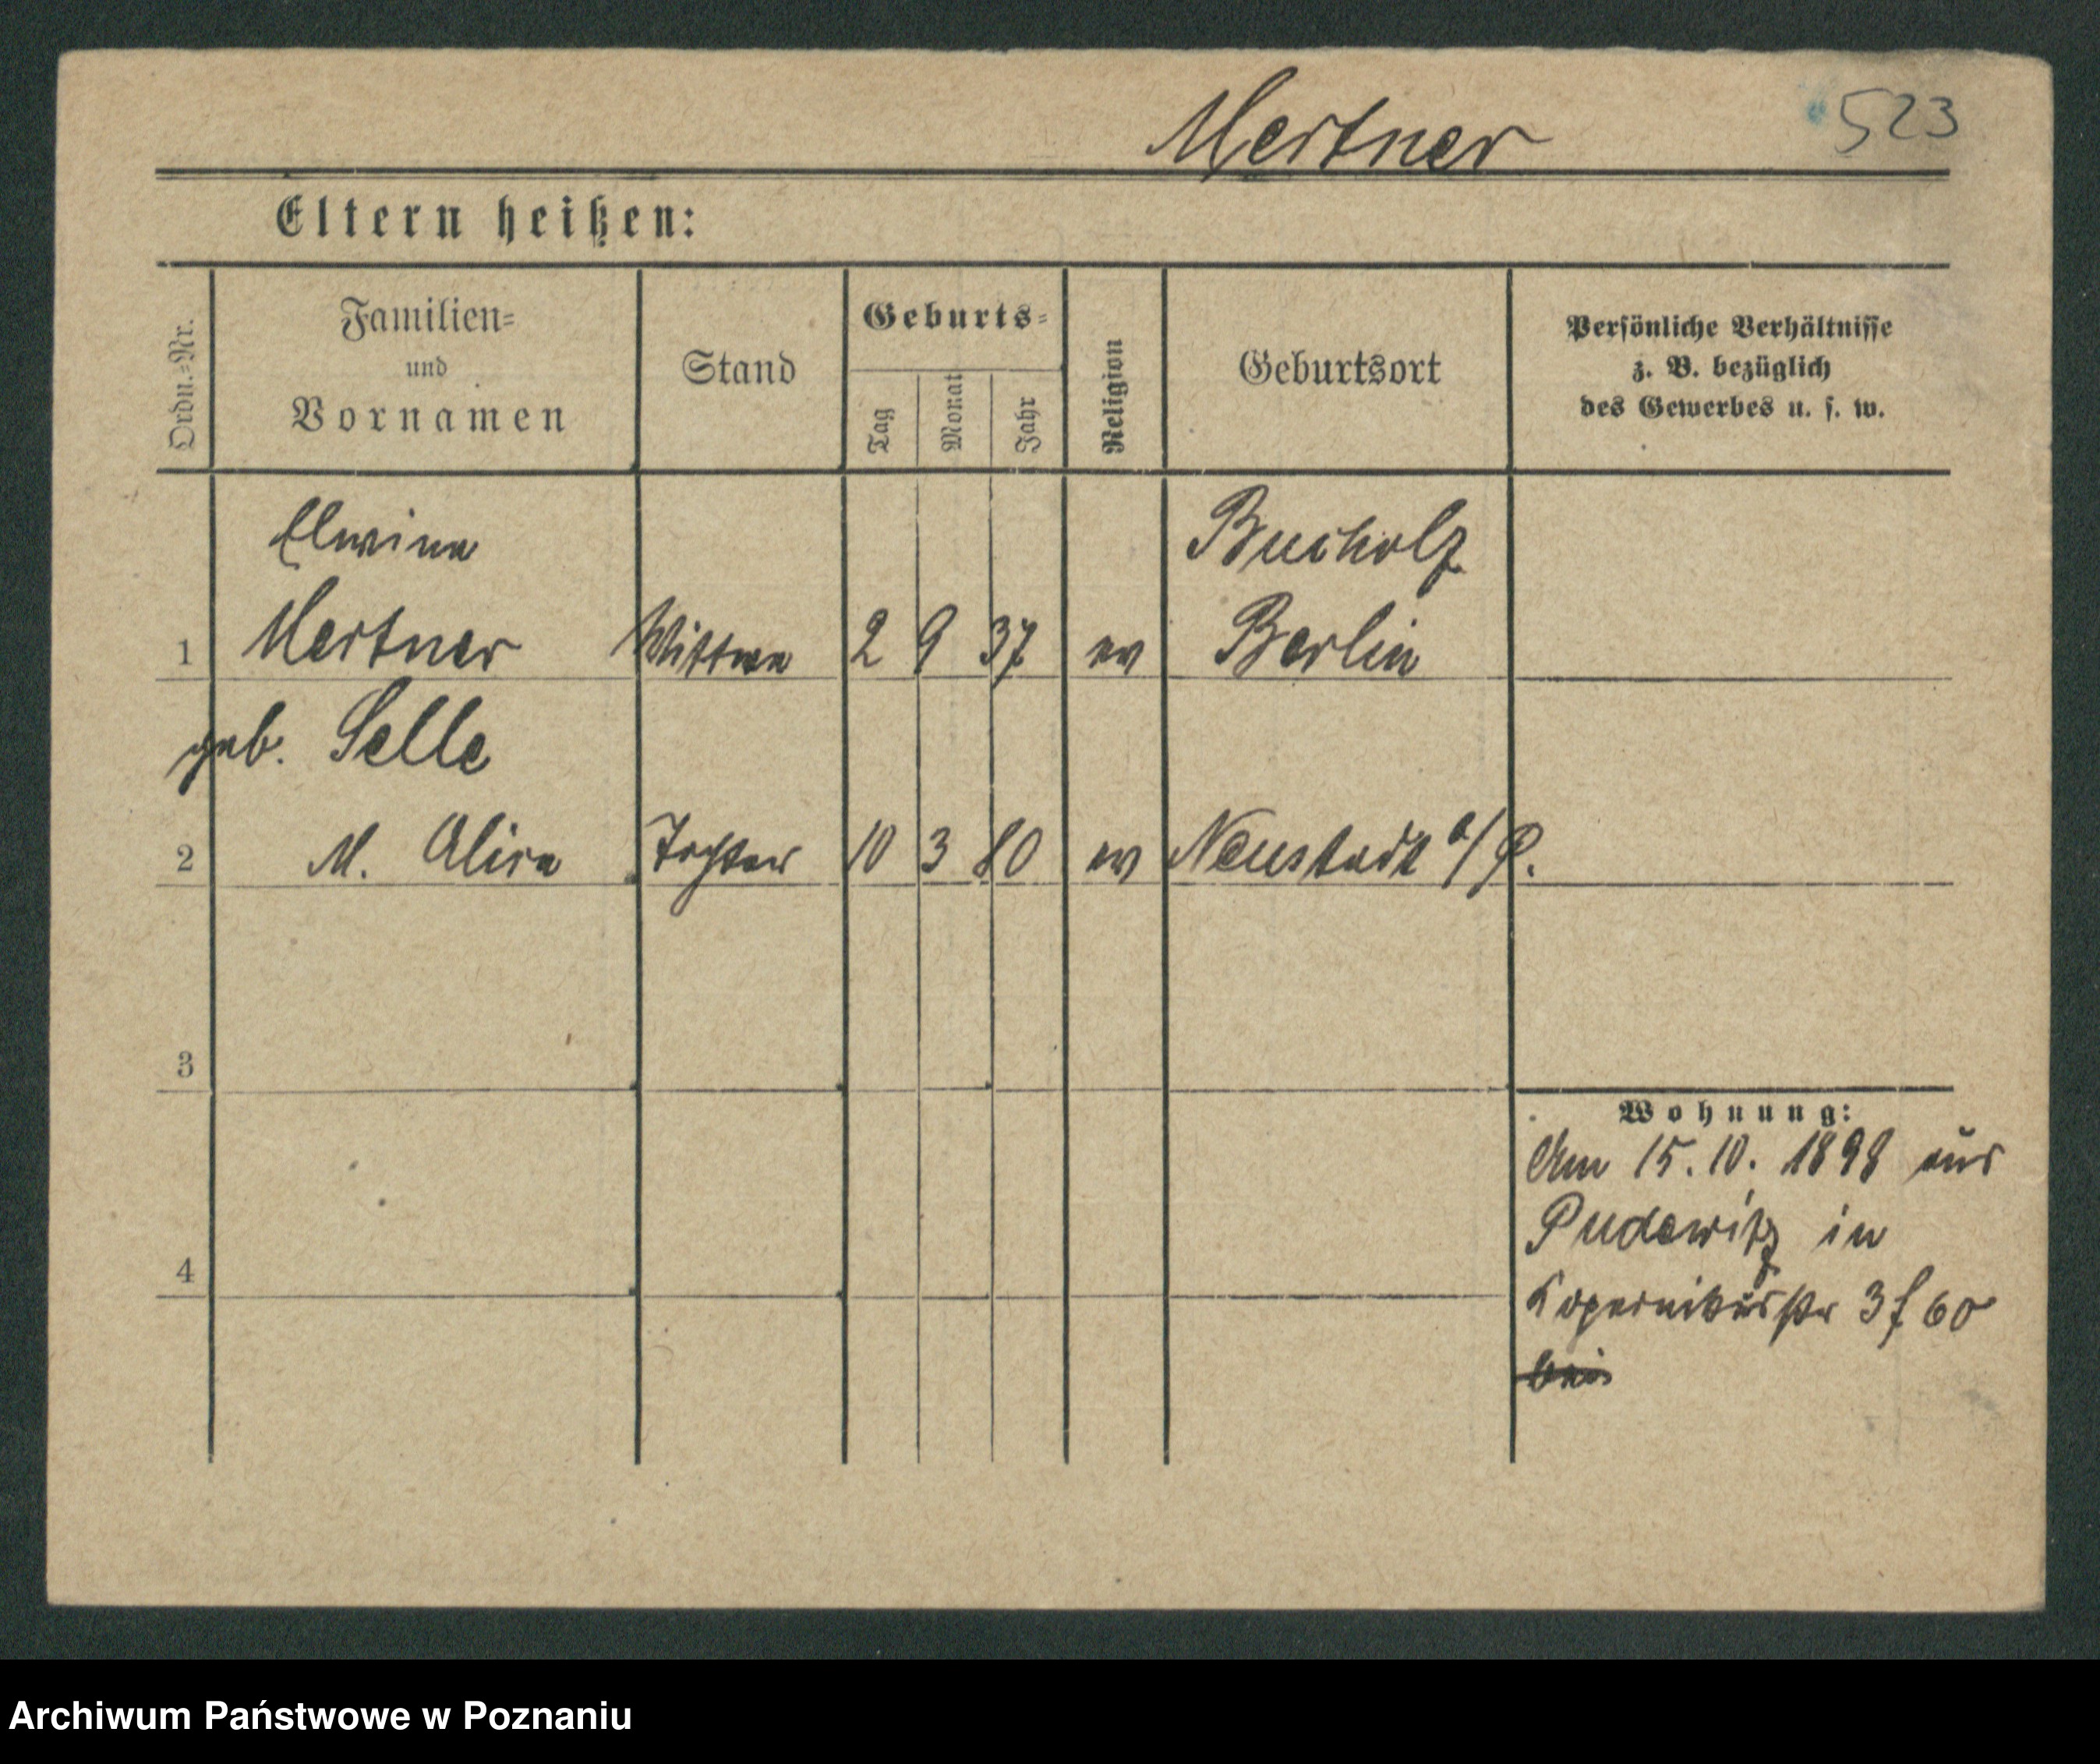 Mertner 523
Eltern heißen:
Ordn.-Nr.
Familien-
und
Vornamen
Stand
Geburts-
Tag
Monat
Jahr
Religion
Geburtsort
Persönliche Verhältnisse
z. B. bezüglich
des Gewerbes u. s. w.
Elwine Bucholz
1 Mertner Wittwe 2 9 37 ev Berlin
geb. Selle
2 M. Alice Tochter 10 3 80 ev Neustadt a/P.
3
Wohnung:
Am 15.10.1898 aus
Pudewitz in
4
Kopernikusstr 3 f 60
bei
Archiwum Państwowe w Poznaniu